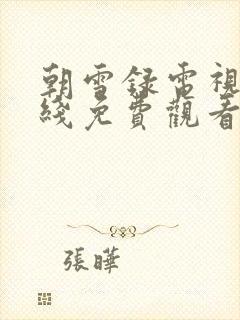 朝雪録電視
綫免費觀看
張曄